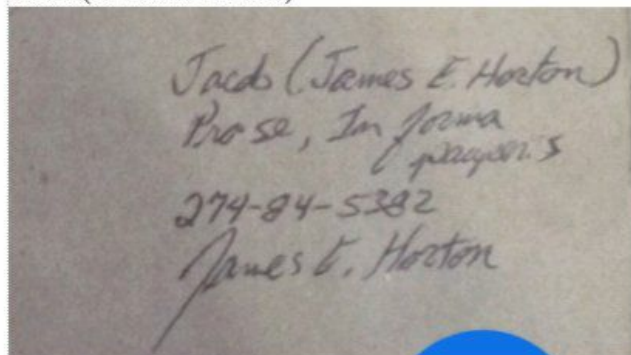 Jacob (James E. Horton)
Pro se, In forma
pauperis
274-84-5382
James E. Horton